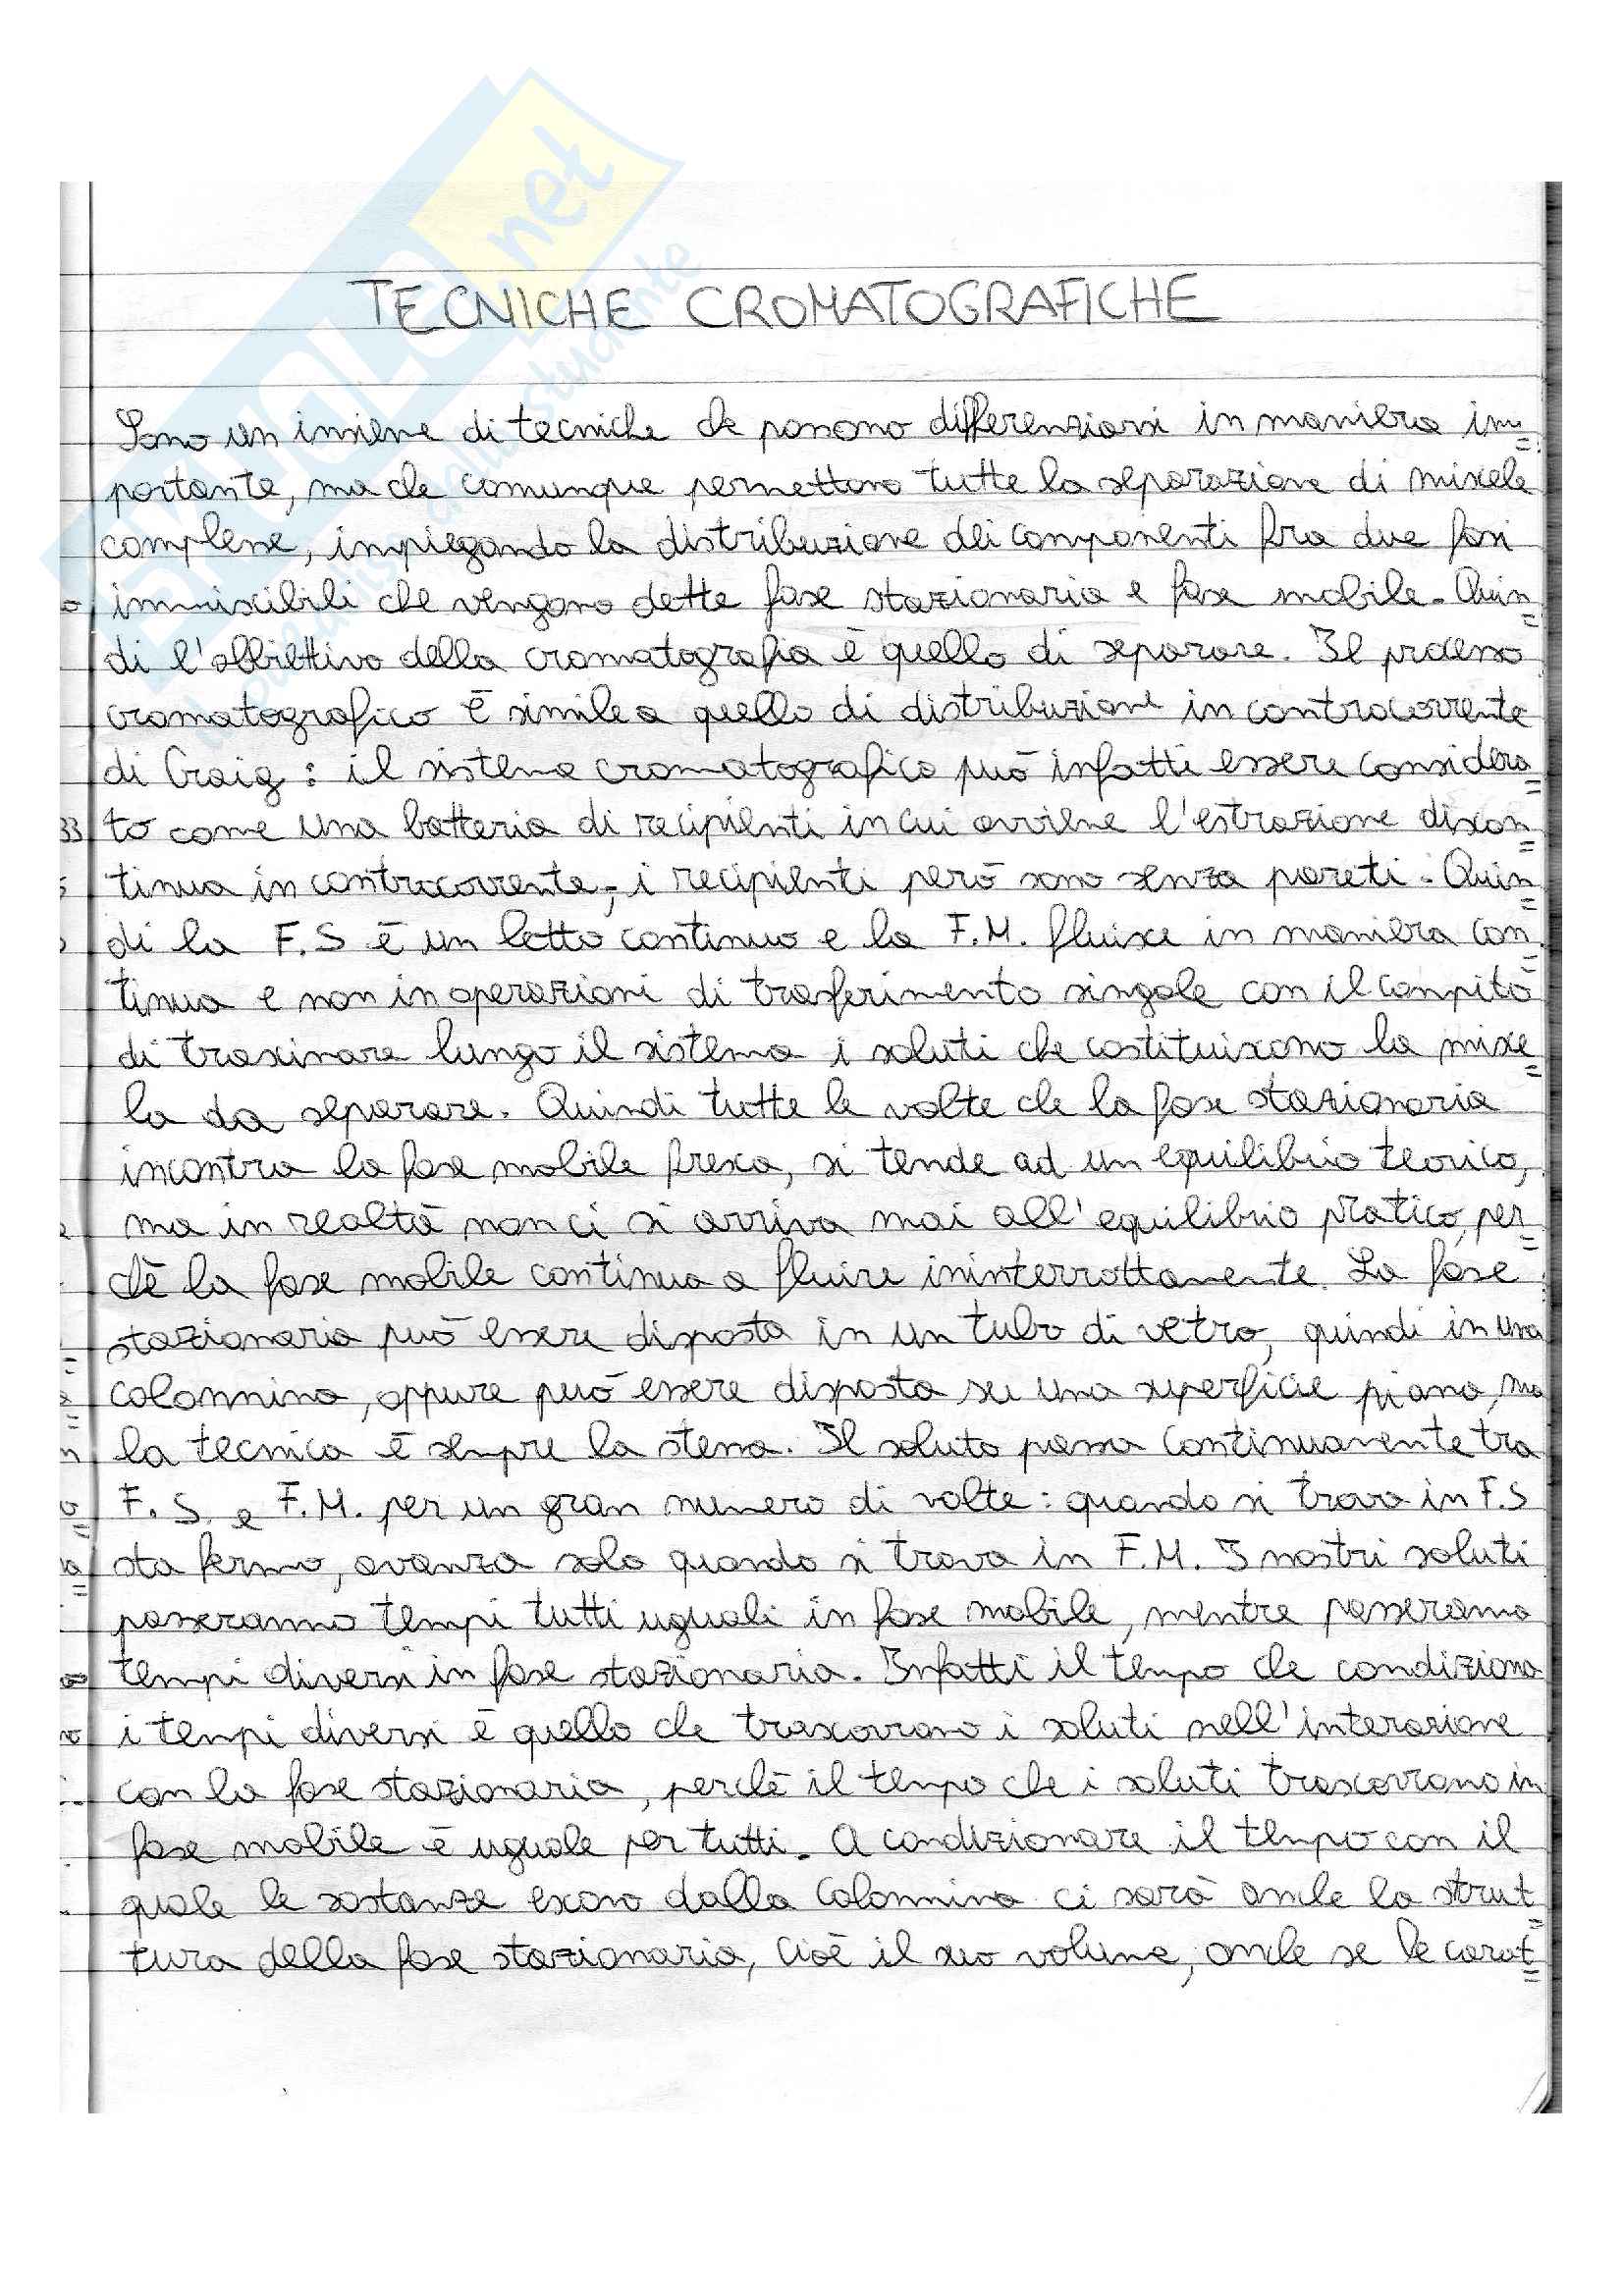 net
TECNICHE CROMATOGRAFICHE
Sono un insieme di tecniche che possono differenziarsi in maniera im=
portante, ma che comunque permettono tutte la separazione di miscele
complesse, impiegando la distribuzione dei componenti fra due fasi
immiscibili che vengono dette fase stazionaria e fase mobile. Quin=
di l'obbiettivo della cromatografia è quello di separare. Il processo
cromatografico è simile a quello di distribuzione in controcorrente
di Craig: il sistema cromatografico può infatti essere considera=
to come una batteria di recipienti in cui avviene l'estrazione discon=
tinua in controcorrente, i recipienti però sono senza pareti. Quin=
di la F.S è un letto continuo e la F.M. fluisce in maniera con=
tinua e non in operazioni di trasferimento singole con il compito
di trascinare lungo il sistema i soluti che costituiscono la misce=
la da separare. Quindi tutte le volte che la fase stazionaria
incontra la fase mobile fresca, si tende ad un equilibrio teorico,
ma in realtà non ci si arriva mai all'equilibrio pratico, per=
chè la fase mobile continua a fluire ininterrottamente. La fase
stazionaria può essere disposta in un tubo di vetro, quindi in una
colonnina, oppure può essere disposta su una superficie piana, ma
la tecnica è sempre la stessa. Il soluto passa continuamente tra
F.S. e F.M. per un gran numero di volte: quando si trova in F.S
sta fermo, avanza solo quando si trova in F.M. I nostri soluti
passeranno tempi tutti uguali in fase mobile, mentre passeranno
tempi diversi in fase stazionaria. Infatti il tempo che condiziona
i tempi diversi è quello che trascorrono i soluti nell'interazione
con la fase stazionaria, perchè il tempo che i soluti trascorrono in
fase mobile è uguale per tutti. A condizionare il tempo con il
quale le sostanze escono dalla colonnina ci sarà anche la strut=
tura della fase stazionaria, cioè il suo volume, anche se le carat=